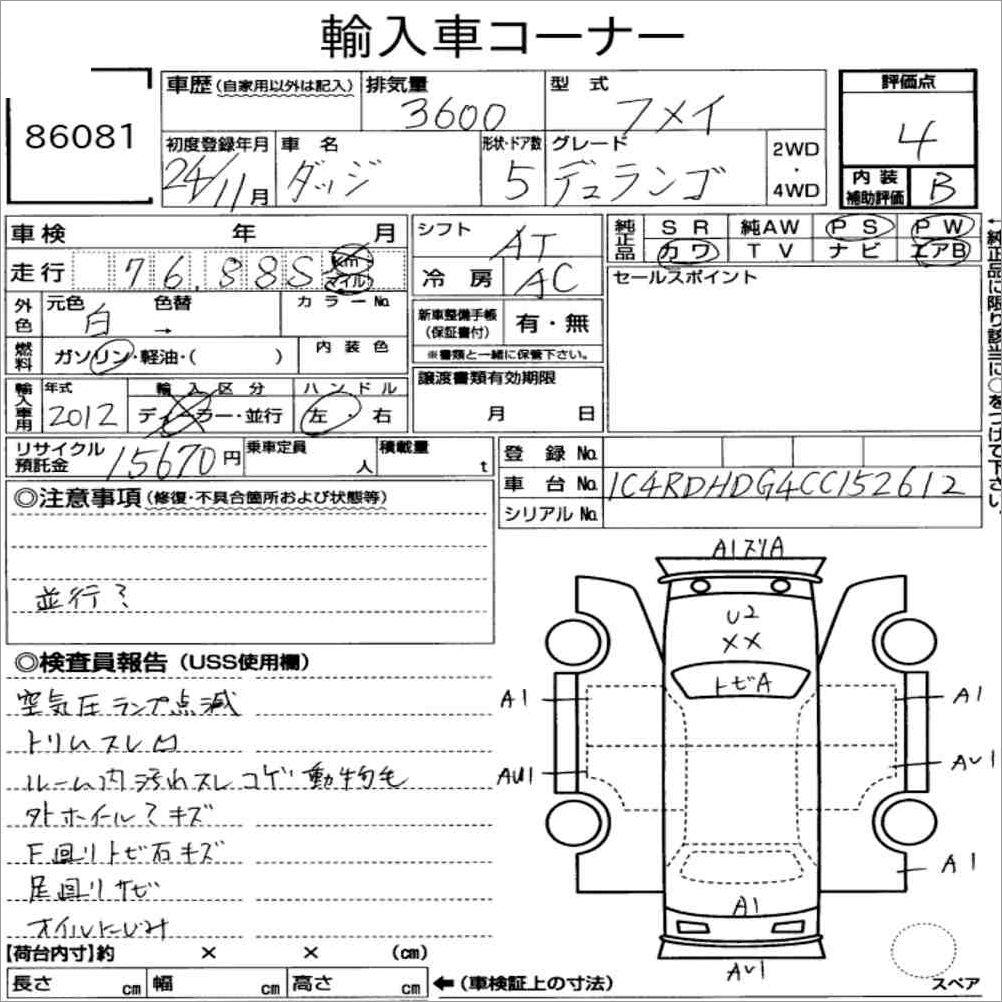 輸入車コーナー
86081
車歴(自家用以外は記入) 排気量 型式 評価点
3600 フメイ 4
初度登録年月 車名 形状・ドア数 グレード 2WD・4WD
24/11月 ダッジ 5 デュランゴ
内装補助評価 B
車検 年 月
走行 km マイル
シフト AT
冷房 AC
純正品 SR 純AW PS PW
カワ TV ナビ エアB
外色 元色 白 色替 → カラーNo.
燃料 ガソリン・軽油・( ) 内装色
新車整備手帳(保証書付) 有・無
※書類と一緒に保管下さい。
セールスポイント
←純正品に限り該当に○をつけて下さい。
輸入車用 年式 2012 輸入区分 ディーラー・並行 ハンドル 左・右
譲渡書類有効期限
月 日
リサイクル預託金 15670円 乗車定員 人 積載量 t
登録No.
車台No. 1C4RDHDG4CC152612
シリアルNo.
◎注意事項(修復・不具合箇所および状態等)
並行?
◎検査員報告(USS使用欄)
空気圧ランプ点滅
トリムスレ凹
ルーム内汚れスレコゲ動物毛
外ホイール?キズ
下回りトビ石キズ
足回りサビ
オイルにじみ
A1スリA
U2
××
トビA
A1
A1
AU1
AU1
A1
A1
AU1
【荷台内寸】約 × × (cm)
長さ cm 幅 cm 高さ cm ←(車検証上の寸法)
スペア